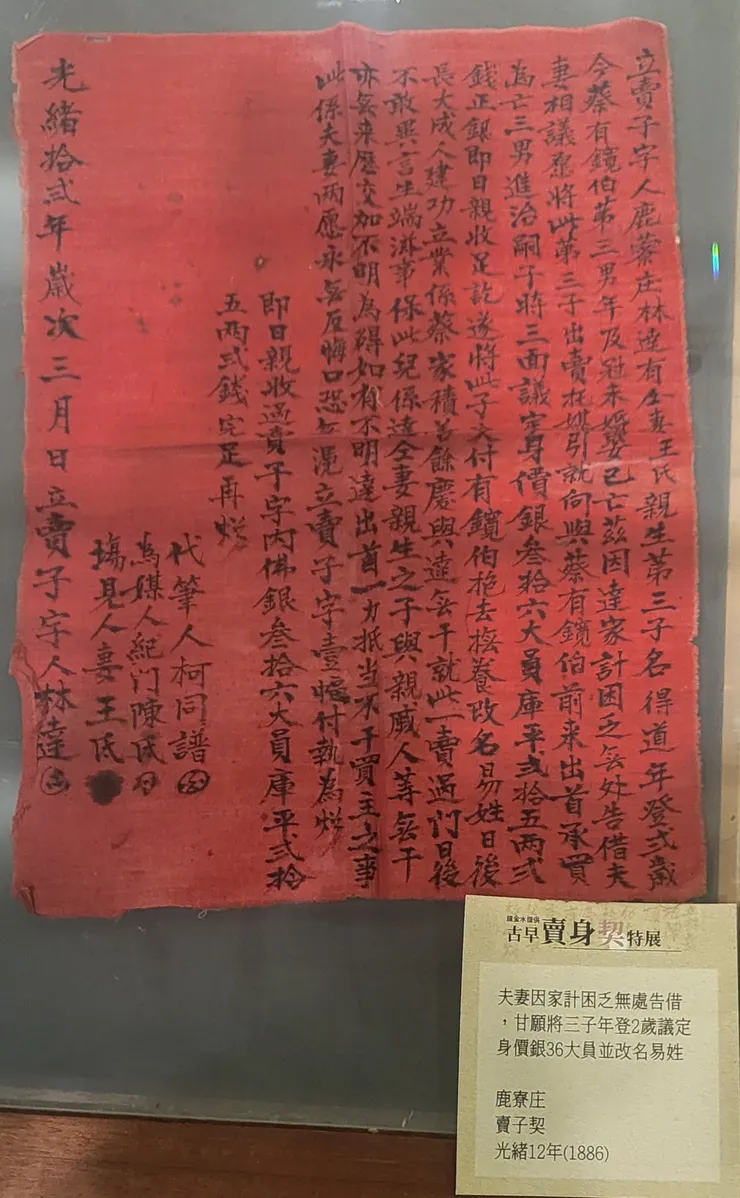 立賣子字人鹿藔庄林達有仝妻王氏親生第三子名得道年登弍歲
今蔡有鏡伯第三男年及冠未娶已亡茲因達家計困乏無处告借夫
妻相議愿將此第三子出賣托媒引就向與蔡有鏡伯前来出首承買
為亡三男進治嗣子時三面議定身價銀叁拾六大員庫平弍拾五両弍
錢正銀即日親收足訖遂將此子交付有鏡伯抱去撫養改名易姓日後
長大成人建功立業係蔡家積善餘慶與達無干就此一賣過門日後
不敢異言生端滋事保此兒係達仝妻親生之子與親戚人等無干
亦無来歷交加不明為碍如有不明達出首一力抵当不干買主之事
此係夫妻両愿永無反悔口恐無凴立賣子字壹幅付執為炤
即日親收過賣子字内佛銀叁拾六大員庫平弍拾
五両弍錢完足再炤
代筆人柯同譜
為媒人紀門陳氏
塲見人妻王氏
光緒拾弍年歲次三月日立賣子字人林達
鹽金水傑俱
古早賣身契特展
夫妻因家計困乏無處告借
，甘願將三子年登2歲議定
身價銀36大員並改名易姓
鹿寮庄
賣子契
光緒12年(1886)